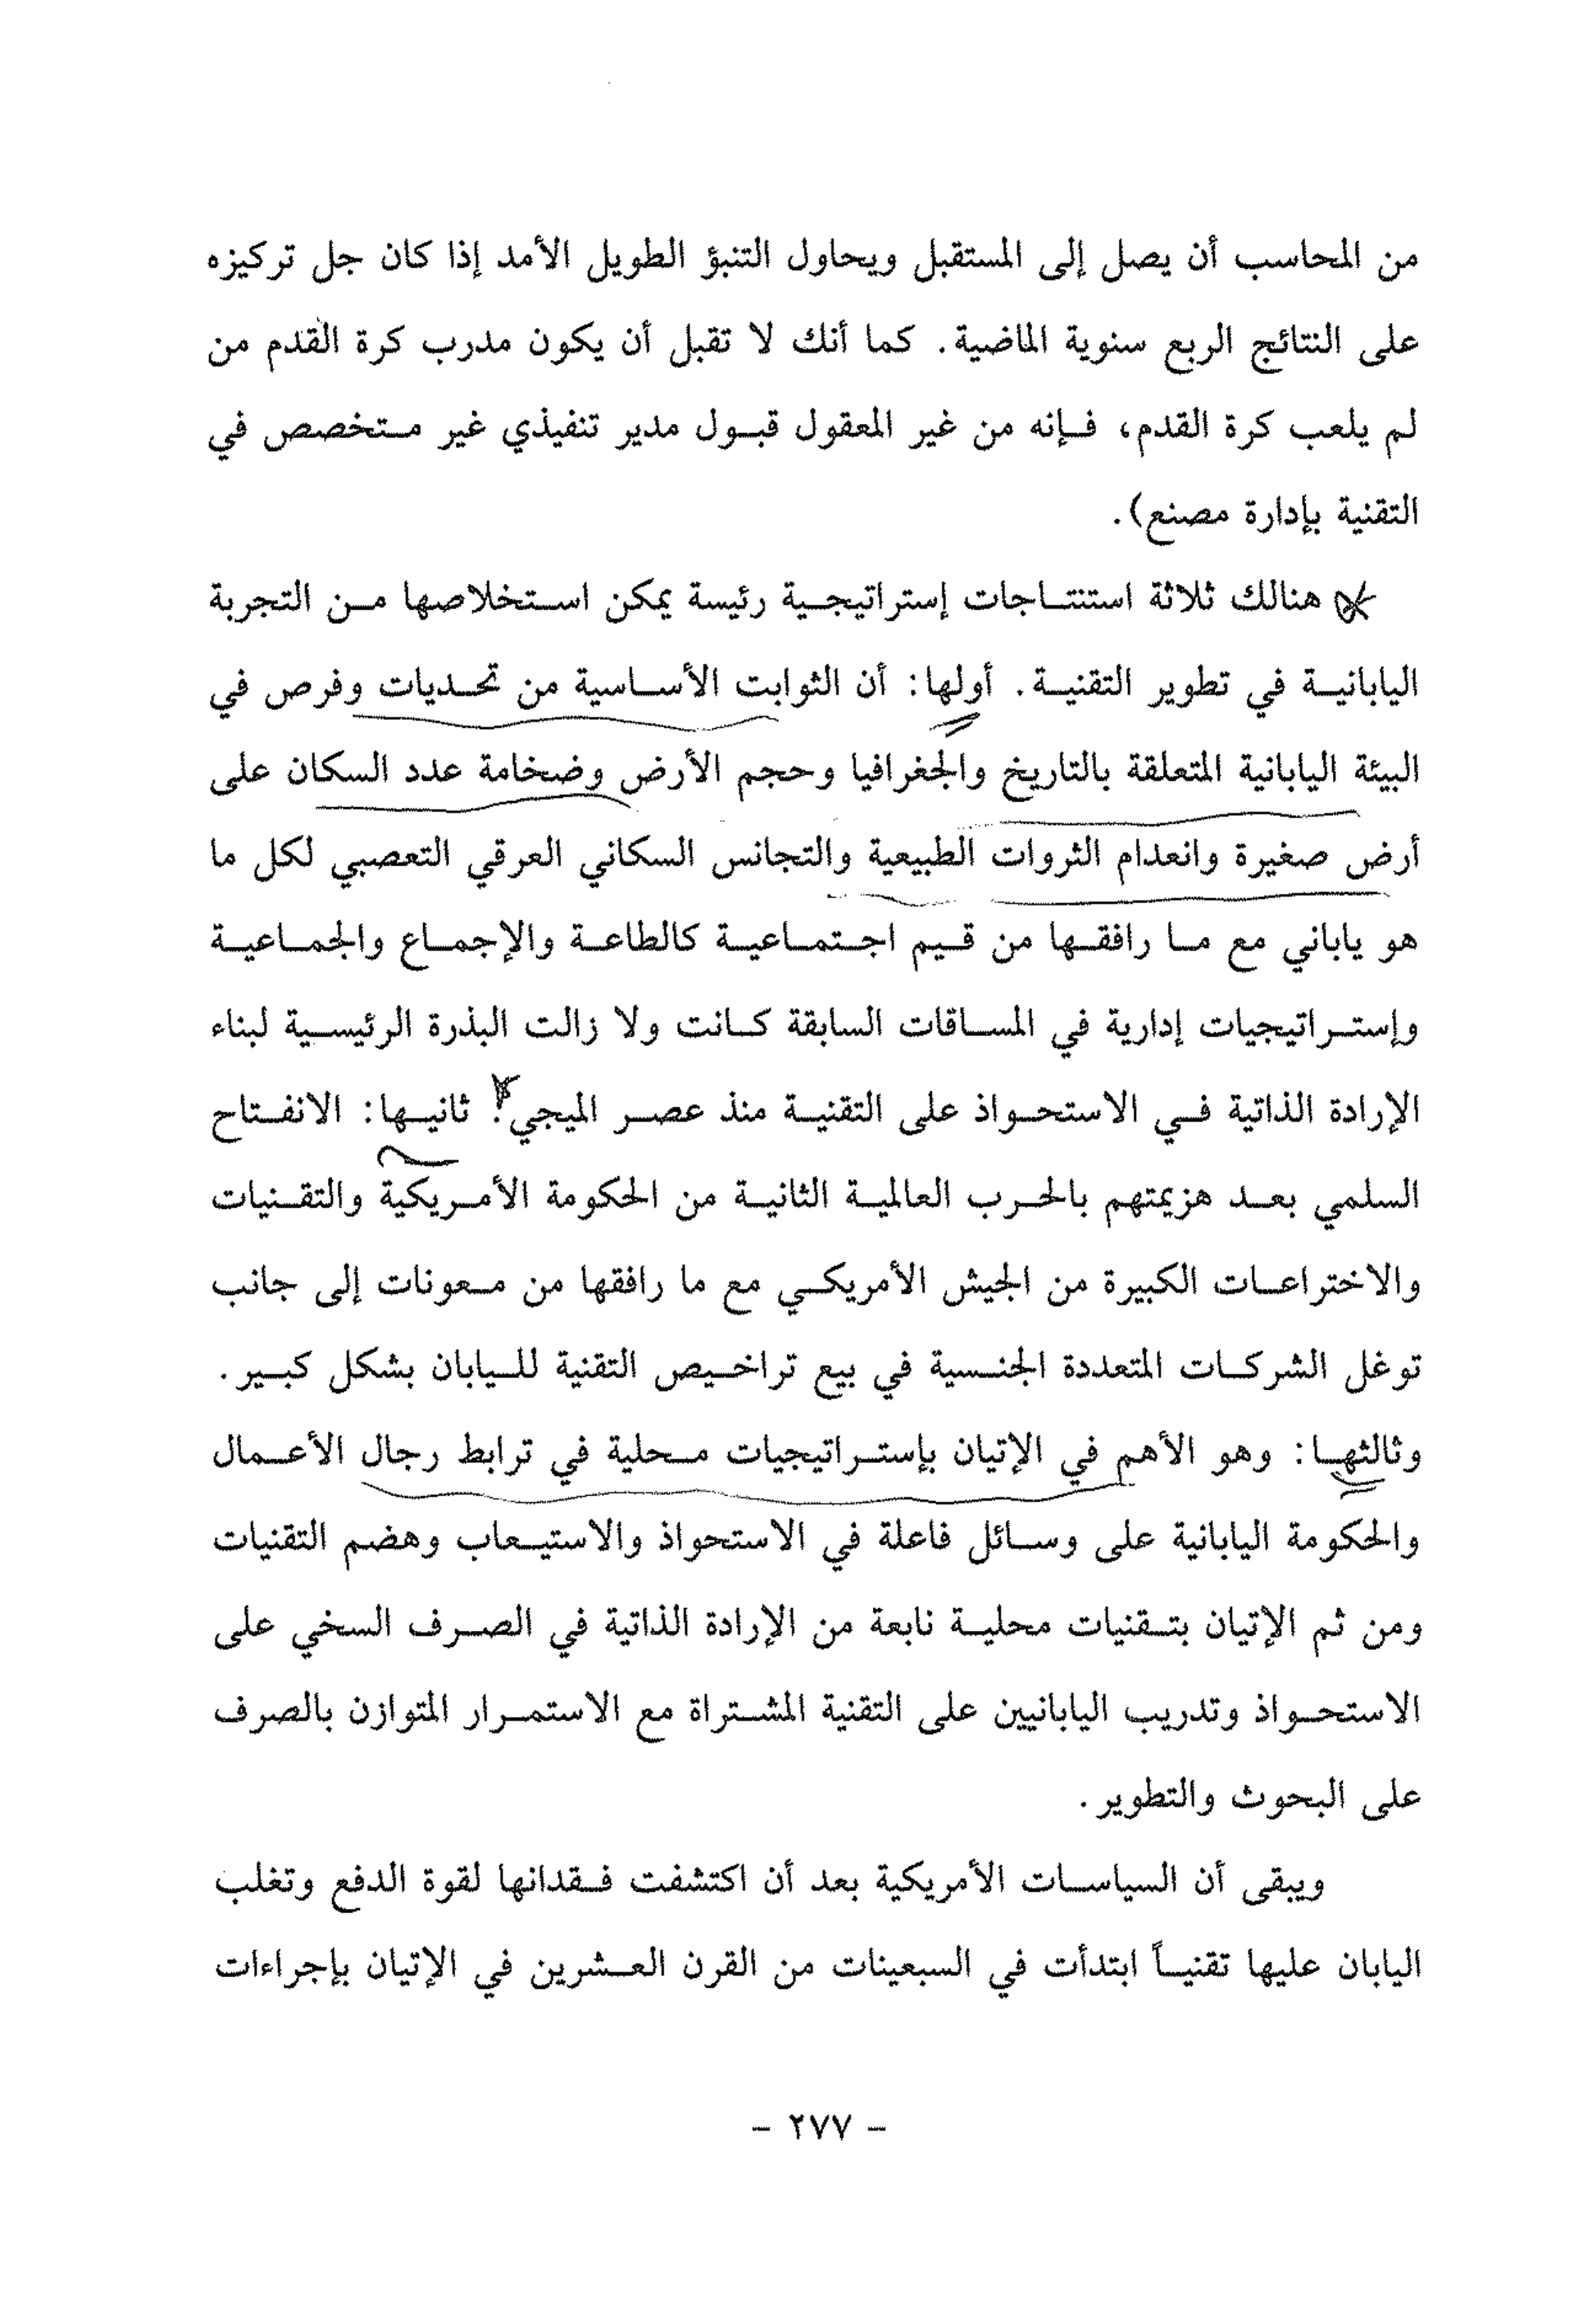 من المحاسب أن يصل إلى المستقبل ويحاول التنبؤ الطويل الأمد إذا كان جل تركيزه
على النتائج الربع سنوية الماضية. كما أنك لا تقبل أن يكون مدرب كرة القدم من
لم يلعب كرة القدم، فإنه من غير المعقول قبول مدير تنفيذي غير متخصص في
التقنية بإدارة مصنع).
هنالك ثلاثة استنتاجات إستراتيجية رئيسة يمكن استخلاصها من التجربة
اليابانية في تطوير التقنية. أولها: أن الثوابت الأساسية من تحديات وفرص في
البيئة اليابانية المتعلقة بالتاريخ والجغرافيا وحجم الأرض وضخامة عدد السكان على
أرض صغيرة وانعدام الثروات الطبيعية والتجانس السكاني العرقي التعصبي لكل ما
هو ياباني مع ما رافقها من قيم اجتماعية كالطاعة والإجماع والجماعية
وإستراتيجيات إدارية في المساقات السابقة كانت ولا زالت البذرة الرئيسية لبناء
الإرادة الذاتية في الاستحواذ على التقنية منذ عصر الميجي. ثانيها: الانفتاح
السلمي بعد هزيمتهم بالحرب العالمية الثانية من الحكومة الأمريكية والتقنيات
والاختراعات الكبيرة من الجيش الأمريكي مع ما رافقها من معونات إلى جانب
توغل الشركات المتعددة الجنسية في بيع تراخيص التقنية لليابان بشكل كبير.
وثالثها: وهو الأهم في الإتيان بإستراتيجيات محلية في ترابط رجال الأعمال
والحكومة اليابانية على وسائل فاعلة في الاستحواذ والاستيعاب وهضم التقنيات
ومن ثم الإتيان بتقنيات محلية نابعة من الإرادة الذاتية في الصرف السخي على
الاستحواذ وتدريب اليابانيين على التقنية المشتراة مع الاستمرار المتوازن بالصرف
على البحوث والتطوير.
ويبقى أن السياسات الأمريكية بعد أن اكتشفت فقدانها لقوة الدفع وتغلب
اليابان عليها تقنياً ابتدأت في السبعينات من القرن العشرين في الإتيان بإجراءات
- ٢٧٧ -